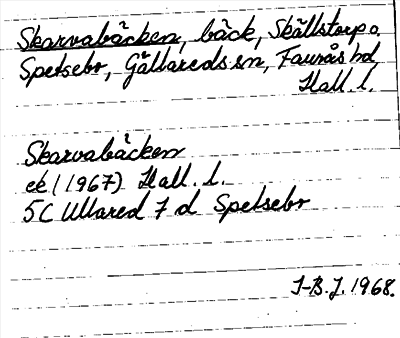 Skarvabäcken, bäck, Skällstorp o.
Spetsebr, Gällareds sn, Faurås hd,
Hall. l.
Skarvabäcken
ek (1967) Hall. l.
5C Ullared 7 d Spetsebr
I-B.J. 1968.